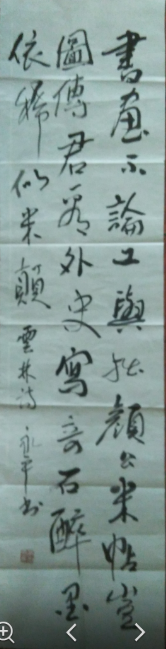 書畫不論工與拙顏公米帖豈
圖傳君看外史寫奇石醉墨
依稀似米顛 雲林詩 永平書